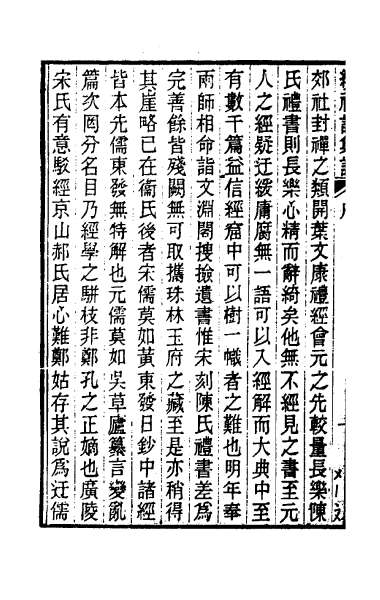 郊社封禪之類開葉文康禮經會元之先較量長樂陳
氏禮書則長樂心精而辭綺矣他無不經見之書至元
人之經疑迂緩庸腐無一語可以入經解而大典中至
有數千篇益信經窟中可以樹一幟者之難也明年奉
兩師相命詣文淵閣搜撿遺書惟宋刻陳氏禮書差爲
完善餘皆殘闕無可取攜珠林玉府之藏至是亦稍得
其崖略已在衞氏後者宋儒莫如黃東發日鈔中諸經
皆本先儒東發無特解也元儒莫如吳草廬纂言變亂
篇次罔分名目乃經學之駢枝非鄭孔之正嫡也廣陵
宋氏有意駁經京山郝氏居心難鄭姑存其說爲迂儒